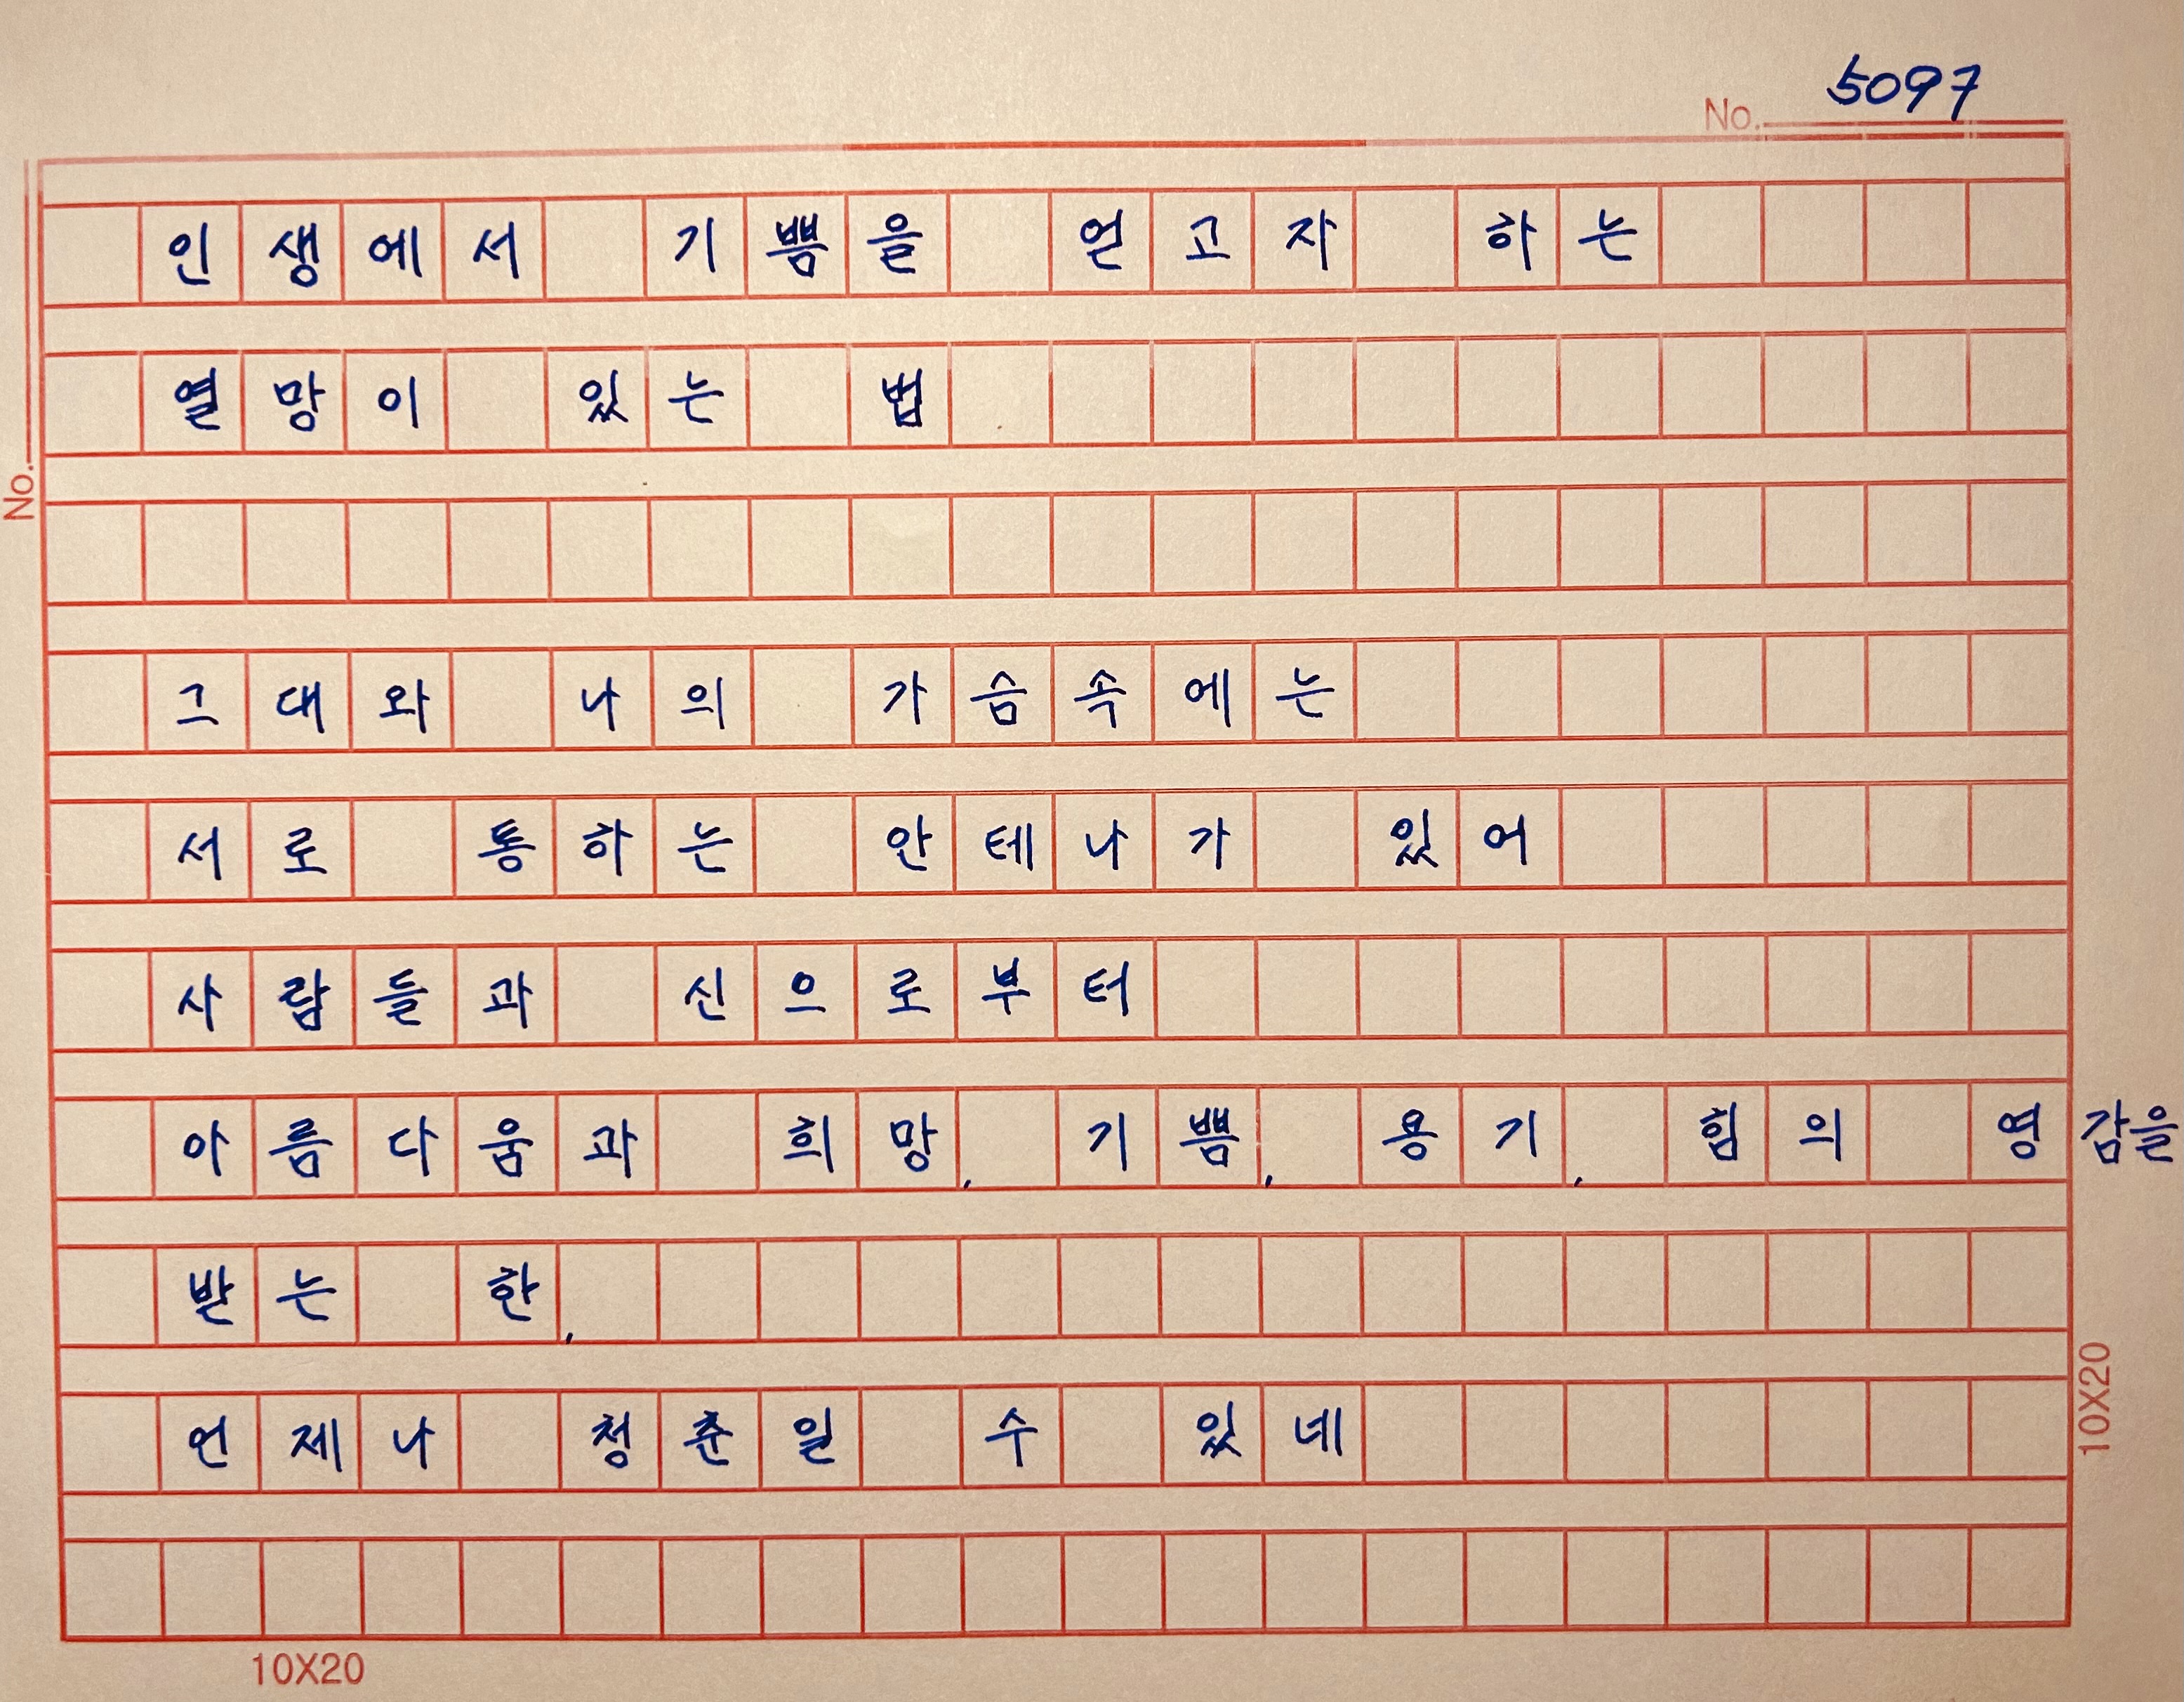 No. 5097
인생에서 기쁨을 얻고자 하는
열망이 있는 법
No.
그대와 나의 가슴속에는
서로 통하는 안테나가 있어
사람들과 신으로부터
아름다움과 희망, 기쁨, 용기, 힘의 영감을
받는 한,
언제나 청춘일 수 있네
10X20
10X20